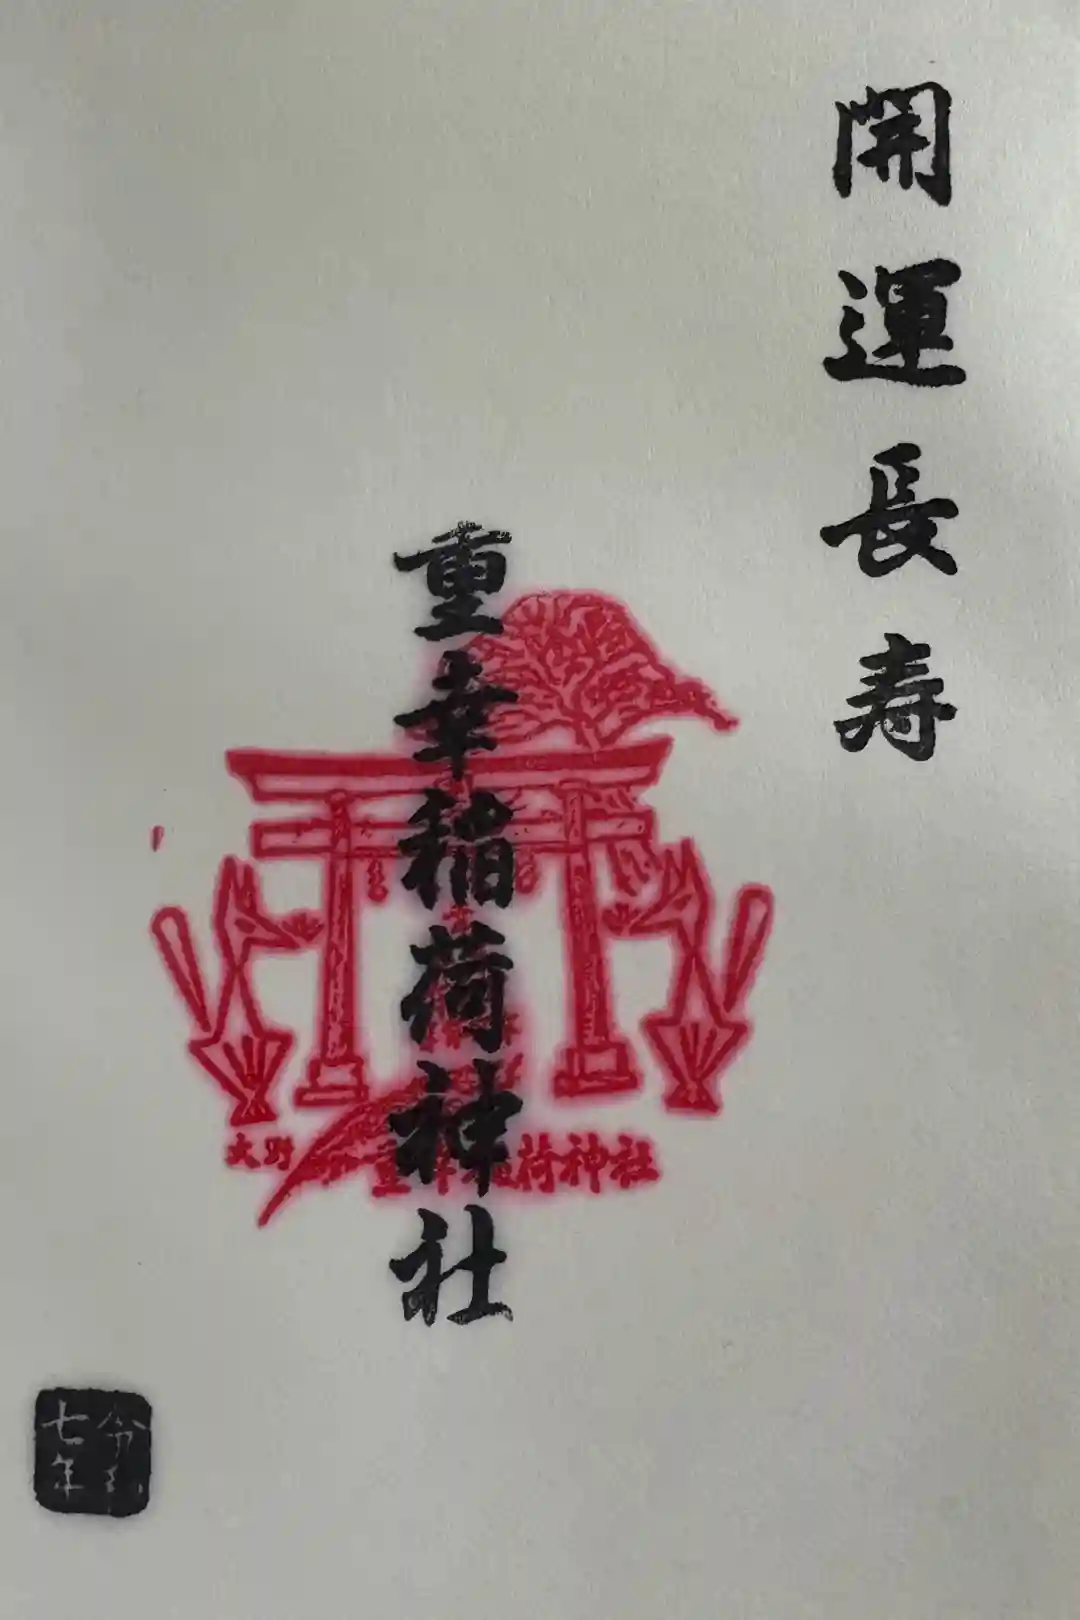 開運長寿
重幸稲荷神社
大野 重幸稲荷神社
令和七年